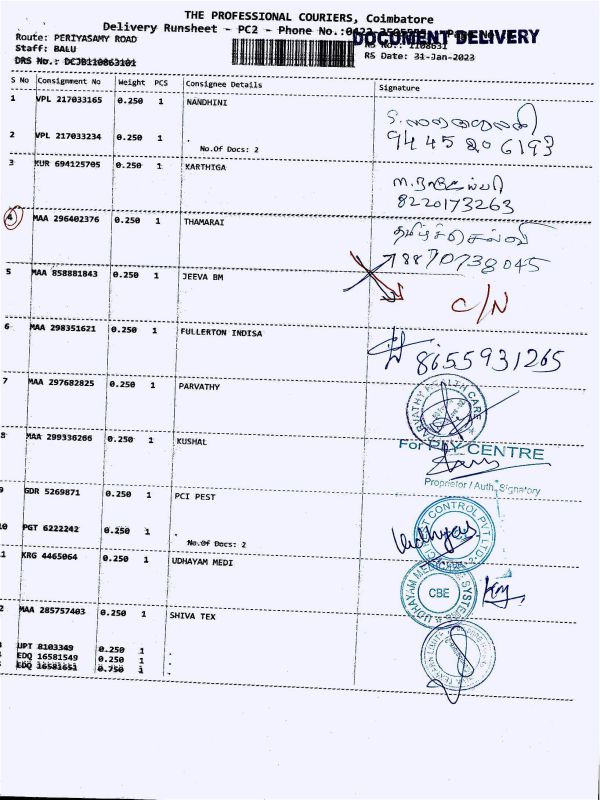 THE PROFESSIONAL COURIERS, Coimbatore
Delivery Runsheet - PC2 - Phone No.:
DOCUMENT DELIVERY
Route: PERIYASAMY ROAD
RS No.: 1108631
Staff: BALU
RS Date: 31-Jan-2023
DRS No.: DCJB110863101
S No Consignment No Weight PCS Consignee Details Signature
1 VPL 217033165 0.250 1 NANDHINI
2 VPL 217033234 0.250 1 .
No.Of Docs: 2
94 45 20 6193
3 KUR 694125705 0.250 1 KARTHIGA
8220173263
4 MAA 296402376 0.250 1 THAMARAI
தமிழ்ச்செல்வி
8870738045
5 MAA 858881843 0.250 1 JEEVA BM
C/N
6 MAA 298351621 0.250 1 FULLERTON INDISA
8655931265
7 MAA 297682825 0.250 1 PARVATHY
PARVATHY HEALTH CARE
8 MAA 299336266 0.250 1 KUSHAL
For PLY CENTRE
Proprietor / Auth. Signatory
9 GDR 5269871 0.250 1 PCI PEST
10 PGT 6222242 0.250 1 .
No.Of Docs: 2
PEST CONTROL PVT LTD
11 KRG 4465064 0.250 1 UDHAYAM MEDI
UDHAYAM MEDICAL SYSTEMS
CBE
2 MAA 285757403 0.250 1 SHIVA TEX
UPT 8103349 0.250 1 .
EDQ 16581549 0.250 1 .
EDQ 16581651 0.750 1 .